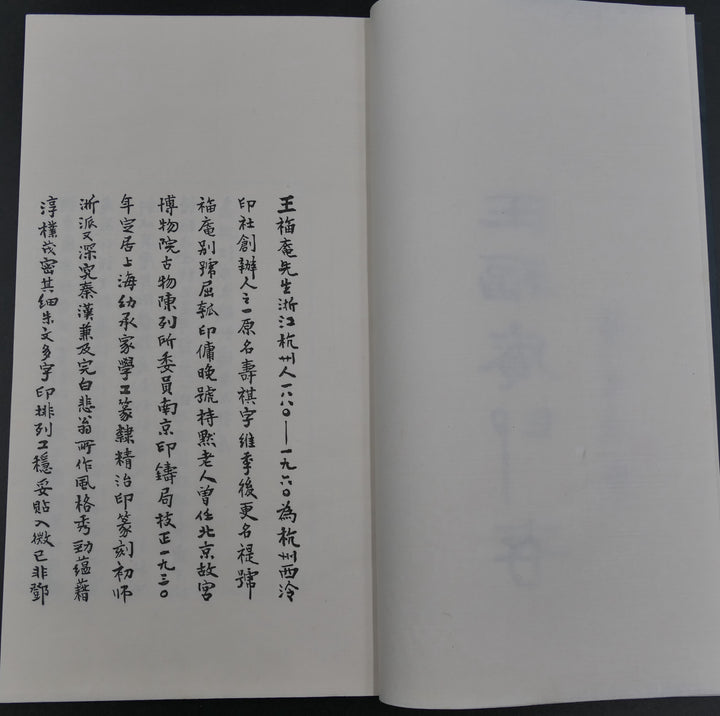 王福庵先生浙江杭州人一八八〇——一九六〇為杭州西泠
印社創辦人之一原名壽祺字維季後更名禔號
福庵别號屈瓠印傭晚號持默老人曾任北京故宫
博物院古物陳列所委員南京印鑄局技正一九三〇
年定居上海幼承家學工篆隸精治印篆刻初师
浙派又深究秦漢兼及完白悲翁所作風格秀勁蕴藉
淳樸茂密其细朱文多字印排列工穩妥貼入微已非鄧